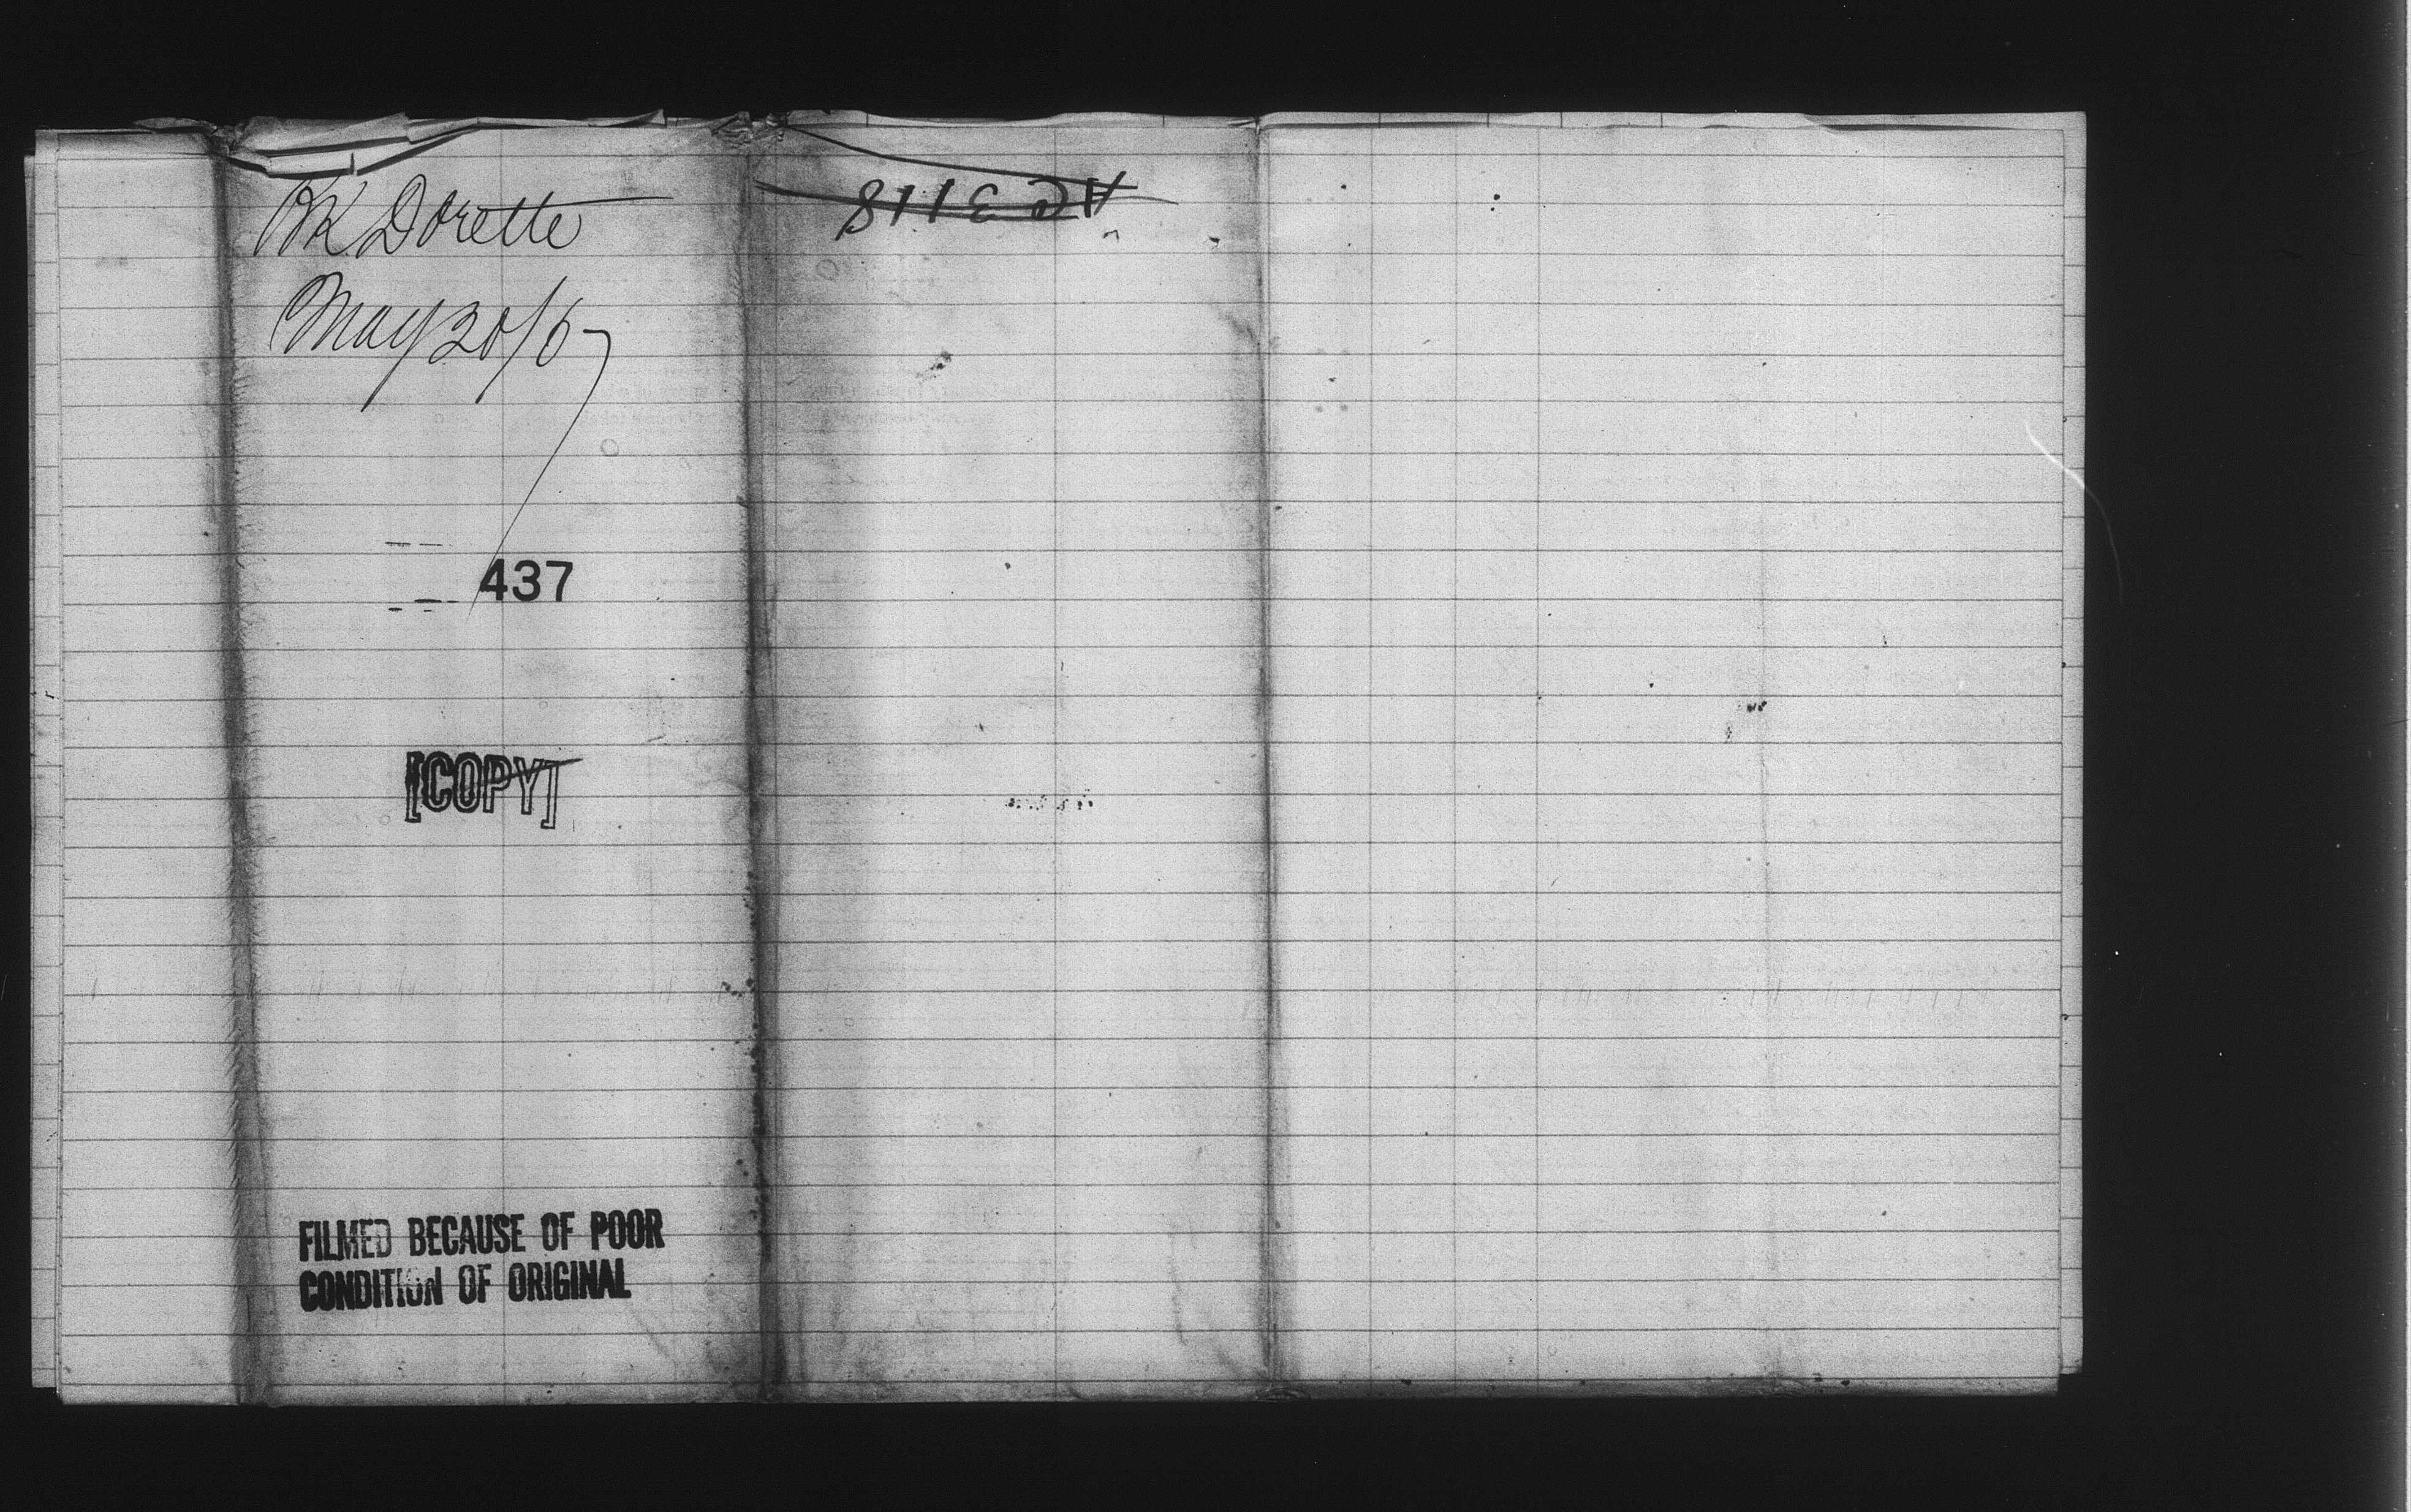 BK Dorette
May 30/67
437
[COPY]
FILMED BECAUSE OF POOR
CONDITION OF ORIGINAL
3118